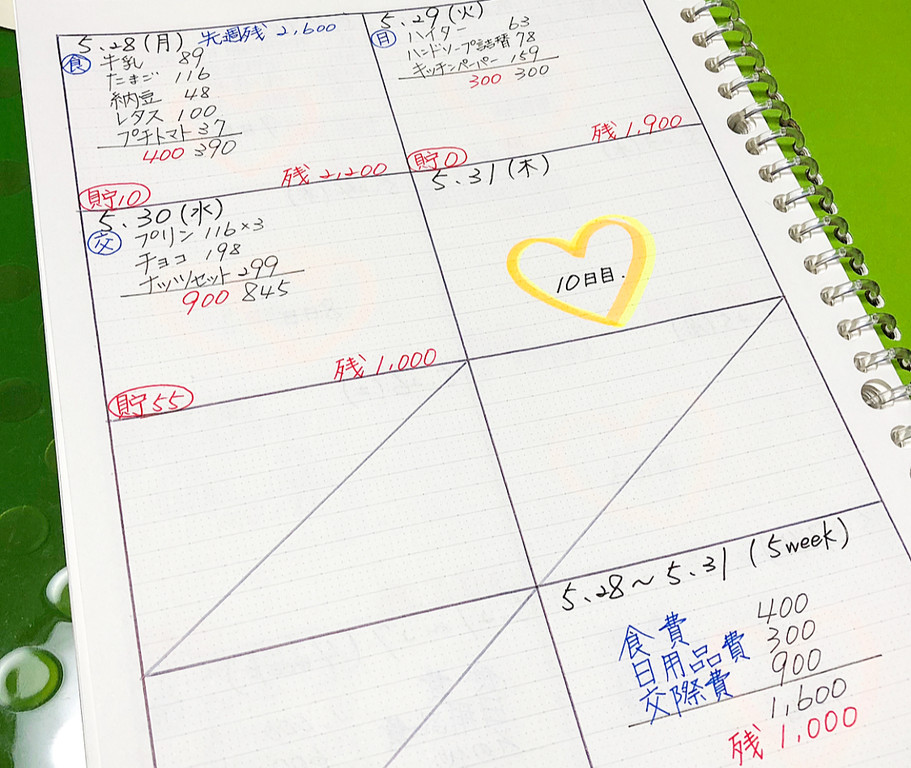 5.28(月) 先週残 2,600
食 牛乳 89
たまご 116
納豆 48
レタス 100
プチトマト 37
400 390
残 2,200
貯10
5.29(火)
日 ハイター 63
ハンドソープ詰替 78
キッチンペーパー 159
300 300
残 1,900
貯0
5.30(水)
交 プリン 116×3
チョコ 198
ナッツセット 299
900 845
残 1,000
貯55
5.31(木)
10日目.
5.28〜5.31 (5week)
食費 400
日用品費 300
交際費 900
1,600
残 1,000